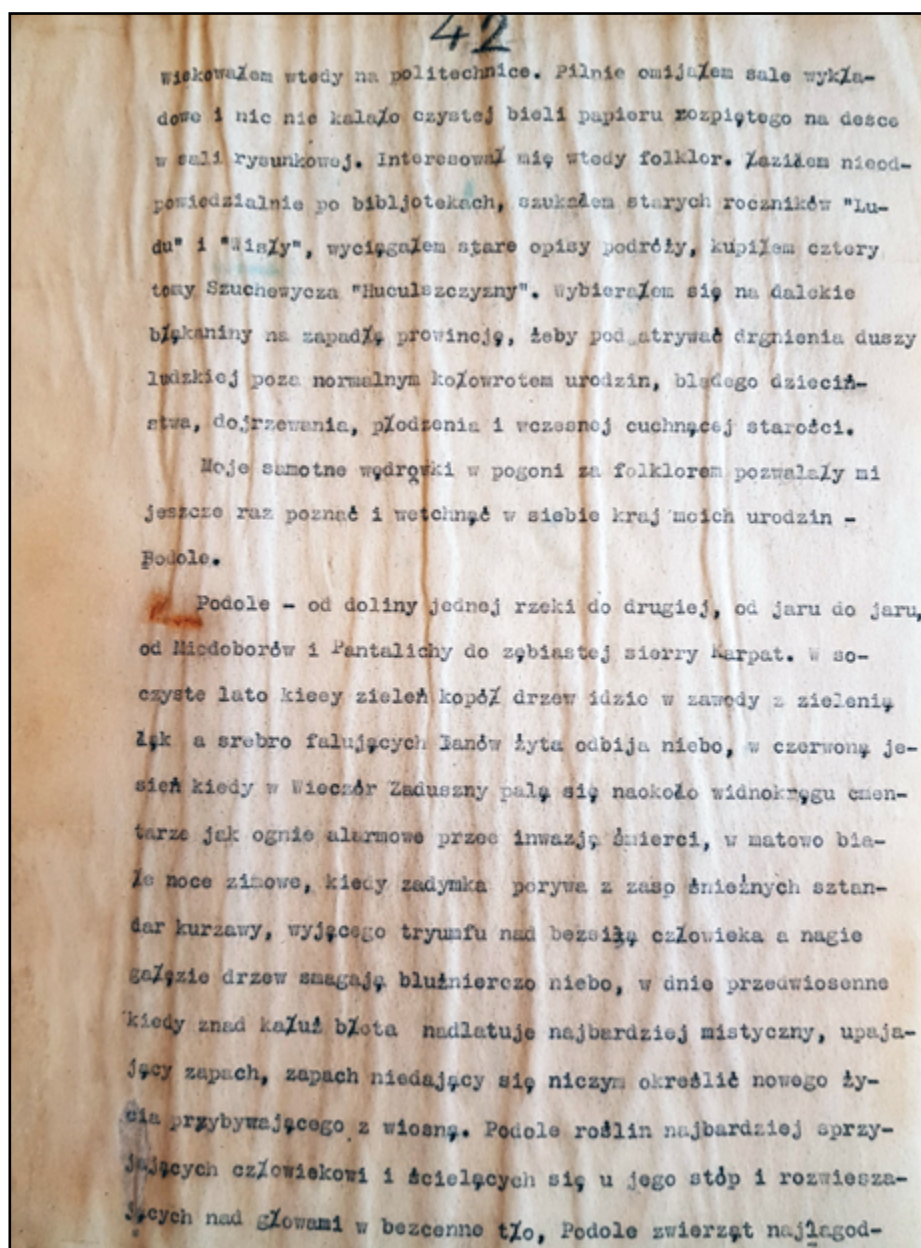 42
wiekowałem wtedy na politechnice. Pilnie omijałem sale wykła-
dowe i nic nie kalało czystej bieli papieru rozpiętego na desce
w sali rysunkowej. Interesował mię wtedy folklor. Łaziłem nieod-
powiedzialnie po bibljotekach, szukałem starych roczników "Lu-
du" i "Wisły", wyciągałem stare opisy podróży, kupiłem cztery
tomy Szuchewycza "Huculszczyzny". Wybierałem się na dalekie
błąkaniny na zapadłą prowincję, żeby pod atrywać drgnienia duszy
ludzkiej poza normalnym kołowrotem urodzin, bladego dzieciń-
stwa, dojrzewania, płodzenia i wczesnej cuchnącej starości.
Moje samotne wędrówki w pogoni za folklorem pozwalały mi
jeszcze raz poznać i wetchnąć w siebie kraj moich urodzin -
Podole.
Podole - od doliny jednej rzeki do drugiej, od jaru do jaru,
od Miodoborów i Pantalichy do zębiastej sierry Karpat. W so-
czyste lato kieey zieleń kopół drzew idzie w zawody z zielenią
łąk a srebro falujących łanów żyta odbija niebo, w czerwoną je-
sień kiedy w Wieczór Zaduszny palą się naokoło widnokręgu cmen-
tarze jak ognie alarmowe przec inwazją śmierci, w matowo bia-
łe noce zimowe, kiedy zadymka porywa z zasp śnieżnych sztan-
dar kurzawy, wyjącego tryumfu nad bezsiłą człowieka a nagie
gałęzie drzew smagają bluźnierczo niebo, w dnie przedwiosenne
kiedy znad kałuż błota nadlatuje najbardziej mistyczny, upaja-
jący zapach, zapach niedający się niczym określić nowego ży-
cia przybywającego z wiosną. Podole roślin najbardziej sprzy-
jających człowiekowi i ścielących się u jego stóp i rozwiesza-
jących nad głowami w bezcenne tło, Podole zwierząt najłagod-